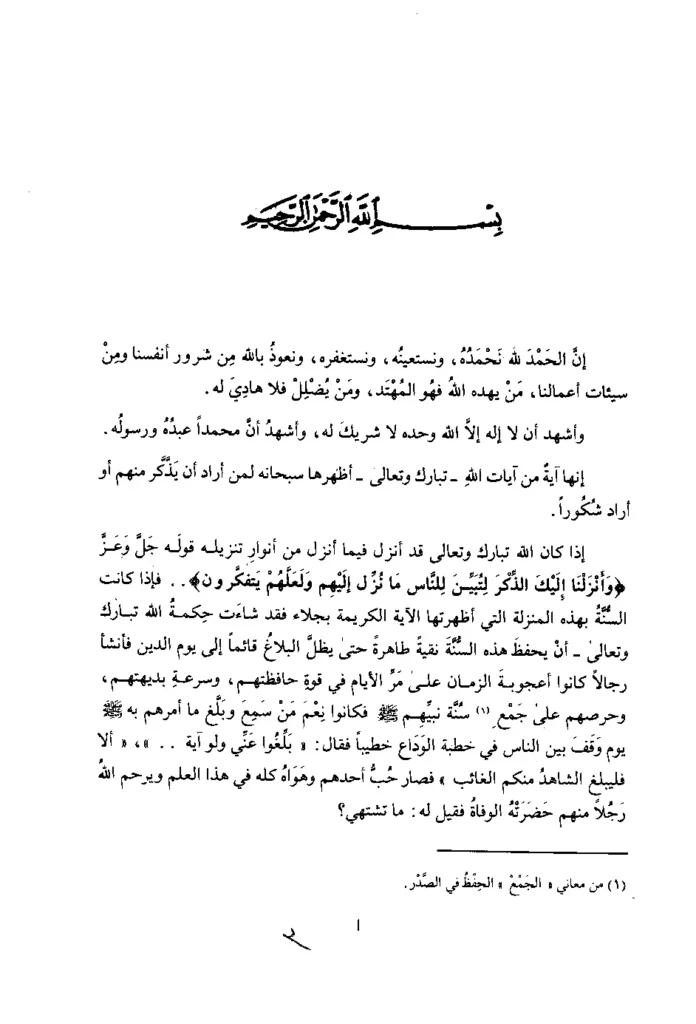 بِسْمِ اللَّهِ الرَّحْمَٰنِ الرَّحِيمِ
إنَّ الحَمْدَ لله نَحْمَدُهُ، ونستعينُه، ونستغفره، ونعوذُ بالله مِن شرور أنفسنا ومِنْ
سيئات أعمالنا، مَنْ يهده اللهُ فهُو المُهْتَد، ومَنْ يُضْلِلْ فلا هاديَ له.
وأشهد أن لا إله إلاَّ الله وحده لا شريكَ له، وأشهدُ أنَّ محمداً عبدُهُ ورسولُه.
إنها آيةٌ من آيات اللهِ ـ تبارك وتعالى ـ أظهرها سبحانه لمن أراد أن يَذَّكَّر منهم أو
أراد شكُوراً.
إذا كان الله تبارك وتعالى قد أنزل فيما أنزل من أنوارِ تنزيله قولَه جَلَّ وَعَزَّ
﴿وَأَنْزَلْنَا إِلَيْكَ الذِّكْرَ لِتُبَيِّنَ لِلنَّاسِ مَا نُزِّل إِلَيْهِم وَلَعَلَّهُمْ يَتفكَّرون﴾.. فإذا كانت
السُّنَّةُ بهذه المنزلة التي أظهرتها الآية الكريمة بجلاء فقد شاءَت حِكمةُ الله تبارك
وتعالىٰ ـ أنْ يحفظَ هذه السُّنَّة نقيةً طاهرةً حتىٰ يظلَّ البلاغُ قائماً إلى يوم الدين فأنشأ
رجالاً كانوا أعجوبةَ الزمان علىٰ مَرِّ الأيام في قوةِ حافظتهم، وسرعةِ بديهتهم،
وحرصهم علىٰ جَمْعِ (١) سُنَّة نبيِّهم ﷺ فكانوا نِعْمَ مَنْ سَمِعَ وبَلَّغ ما أمرهم به ﷺ
يوم وَقَفَ بين الناس في خطبة الوَدَاع خطيباً فقال: « بَلِّغُوا عَنِّي ولو آية .. »، « ألا
فليبلغ الشاهدُ منكم الغائب » فصار حُبُّ أحدهم وهَوَاهُ كله في هذا العلم ويرحم اللهُ
رَجُلاً منهم حَضَرَتْهُ الوفاةُ فقيل له: ما تشتهي؟
(١) من معاني « الجَمْعْ » الحِفْظُ في الصَّدْر.
١